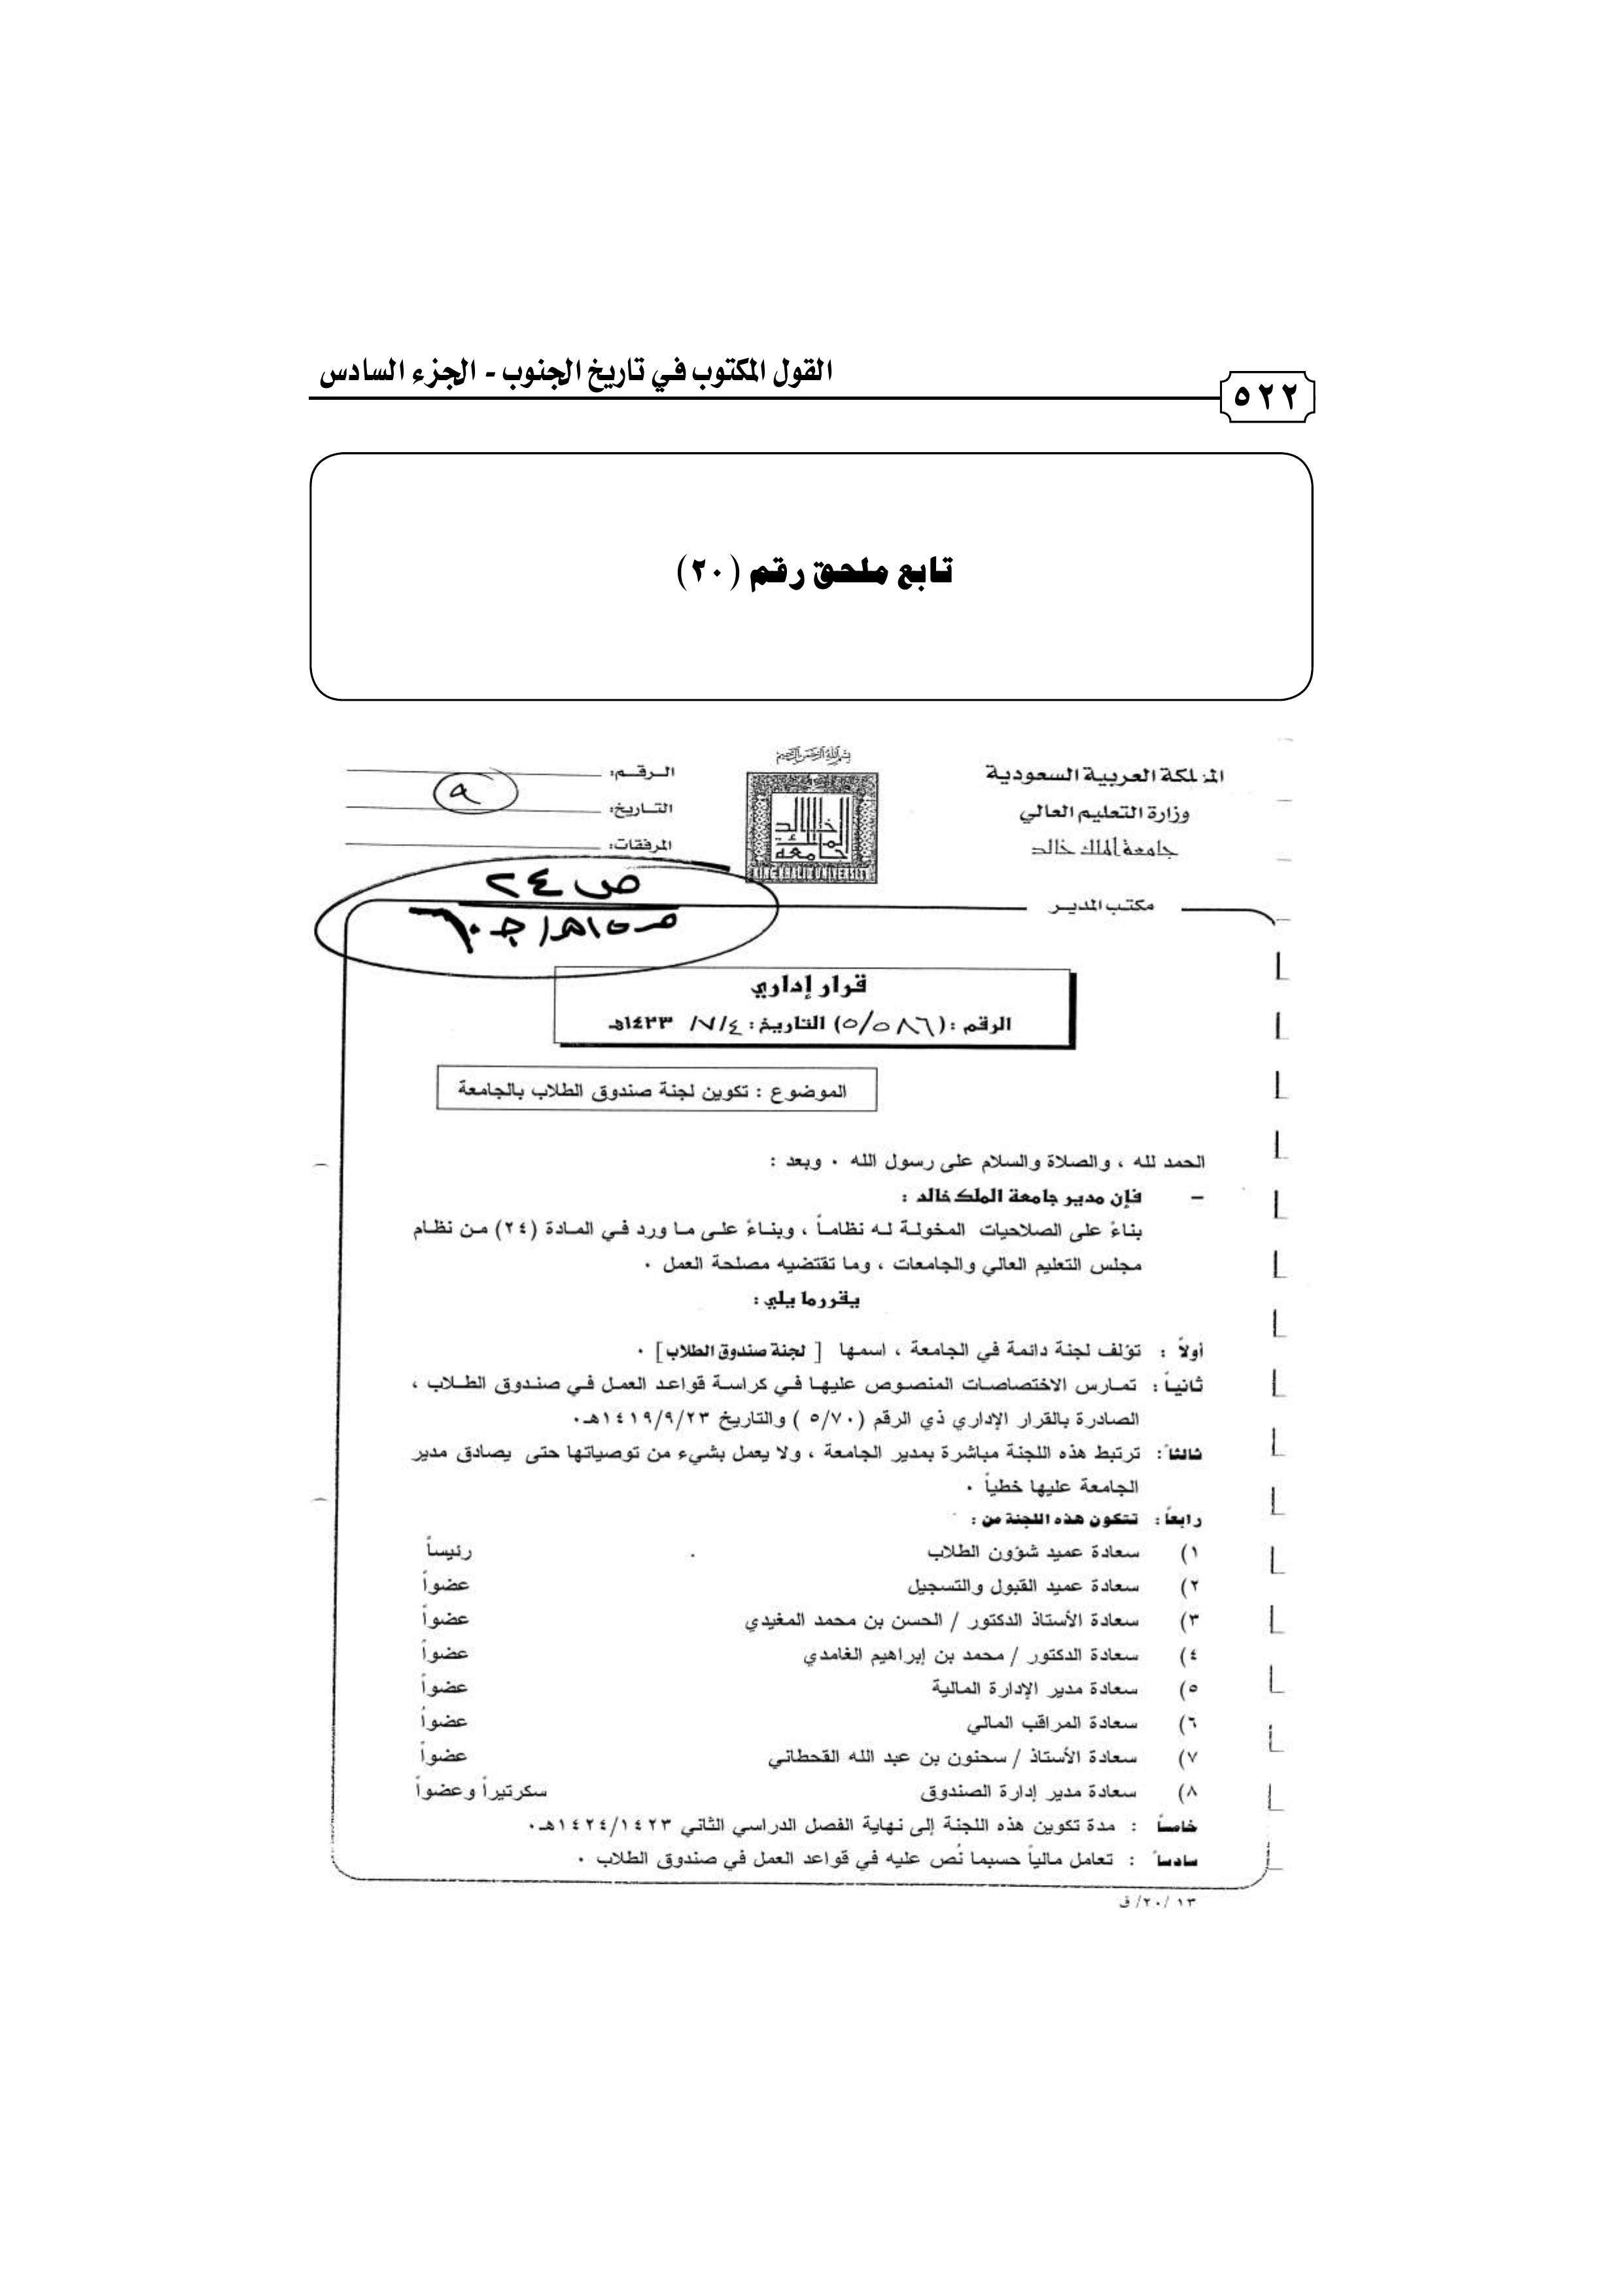 القول المكتوب في تاريخ الجنوب - الجزء السادس
٥٢٢
تابع ملحق رقم (٢٠)
بسم الله الرحمن الرحيم
المملكة العربية السعودية
وزارة التعليم العالي
جامعة الملك خالد
مكتب المدير
KING KHALID UNIVERSITY
الرقم:
التاريخ:
المرفقات:
ص ٢٤
قرار إداري
الرقم : (٥/٥٨٦) التاريخ : ٧/٤/ ١٤٢٣هـ
الموضوع : تكوين لجنة صندوق الطلاب بالجامعة
الحمد لله ، والصلاة والسلام على رسول الله ٠ وبعد :
- فإن مدير جامعة الملك خالد :
بناءً على الصلاحيات المخولة له نظاماً ، وبناءً على ما ورد في المادة (٢٤) من نظام
مجلس التعليم العالي والجامعات ، وما تقتضيه مصلحة العمل ٠
يقرر ما يلي :
أولاً : تؤلف لجنة دائمة في الجامعة ، اسمها [ لجنة صندوق الطلاب ] ٠
ثانياً : تمارس الاختصاصات المنصوص عليها في كراسة قواعد العمل في صندوق الطلاب ،
الصادرة بالقرار الإداري ذي الرقم (٥/٧٠ ) والتاريخ ١٤١٩/٩/٢٣هـ٠
ثالثاً : ترتبط هذه اللجنة مباشرة بمدير الجامعة ، ولا يعمل بشيء من توصياتها حتى يصادق مدير
الجامعة عليها خطياً ٠
رابعاً : تتكون هذه اللجنة من :
١) سعادة عميد شؤون الطلاب رئيساً
٢) سعادة عميد القبول والتسجيل عضواً
٣) سعادة الأستاذ الدكتور / الحسن بن محمد المغيدي عضواً
٤) سعادة الدكتور / محمد بن إبراهيم الغامدي عضواً
٥) سعادة مدير الإدارة المالية عضواً
٦) سعادة المراقب المالي عضواً
٧) سعادة الأستاذ / سحنون بن عبد الله القحطاني عضواً
٨) سعادة مدير إدارة الصندوق سكرتيراً وعضواً
خامساً : مدة تكوين هذه اللجنة إلى نهاية الفصل الدراسي الثاني ١٤٢٤/١٤٢٣هـ٠
سادساً : تعامل مالياً حسبما نُص عليه في قواعد العمل في صندوق الطلاب ٠
١٣ /٢٠/ ق